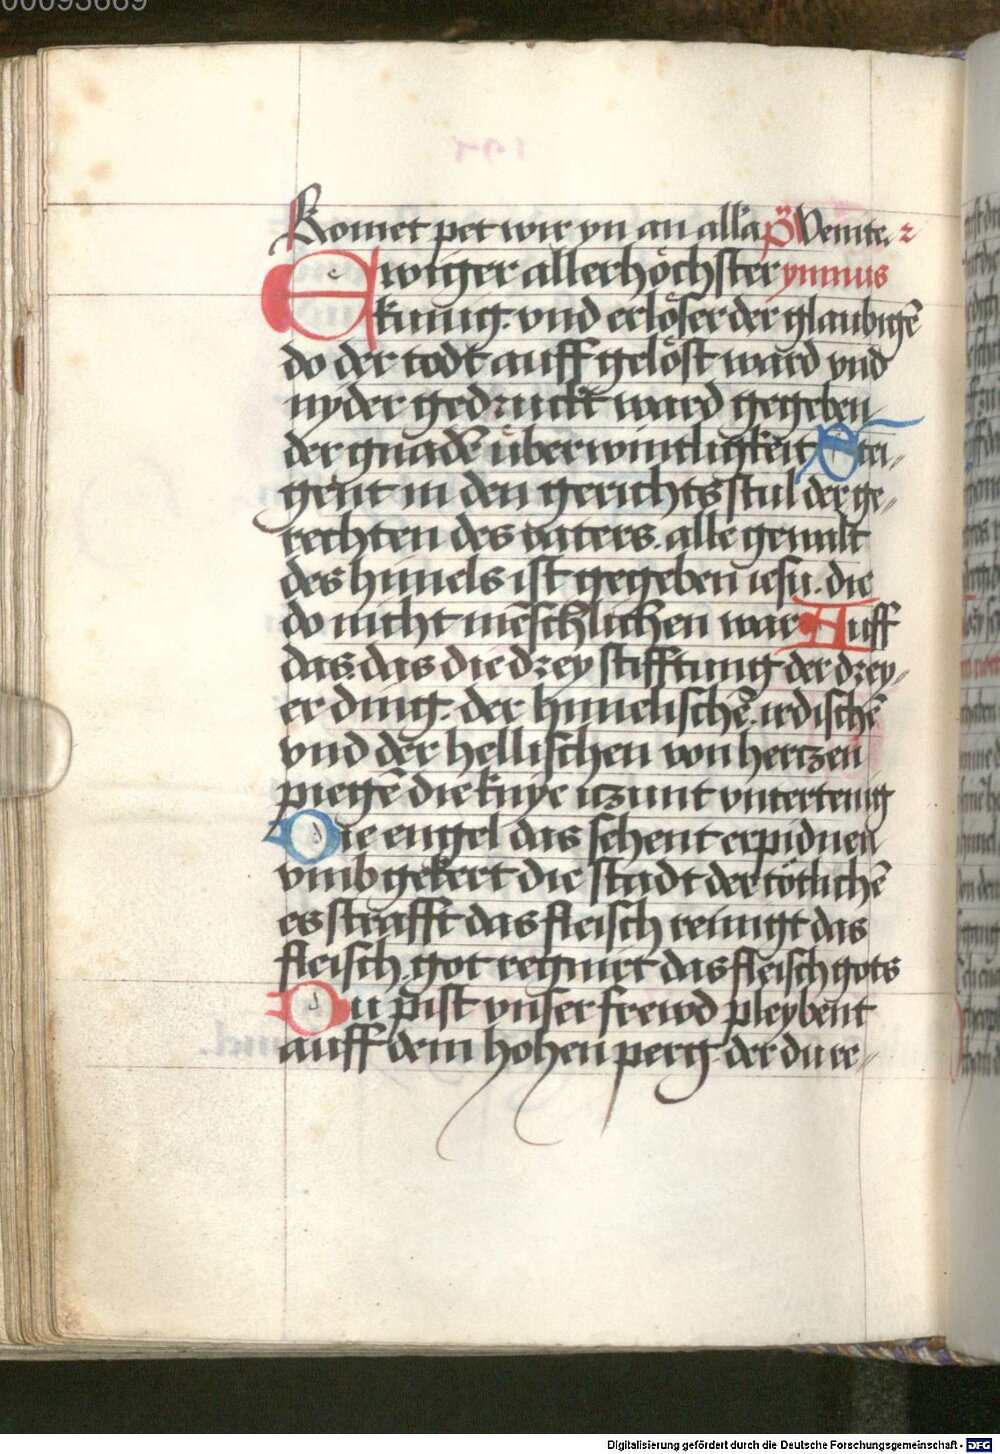 00093669
Komet pet wir yn an alla p̃s Venite. 2
Ewiger allerhöchster ymnus
kunig. vnd erlöser der glaubigē
do der todt auff gelöst ward vnd
nyder gedruckt ward gegeben
der gnadē überwintligkeit Stei„
gent in den gerichts stul der ge„
rechten des vaters. alle gewalt
des himels ist gegeben iesu. die
do nicht mēschlichen war Auff
das das die drey stifftung der drey„
er ding. der himelischē. irdischē
vnd der hellischen von hertzen
piegē die knye itzunt vntertenig
Die engel das sehent erpidnen
vmb gekert die stadt der tötlichē
es strafft das fleisch reinigt das
fleisch got regniret das fleisch gots
Du pist vnser frewd pleybent
auff dem hohen perg der du re„
Digitalisierung gefördert durch die Deutsche Forschungsgemeinschaft - DFG